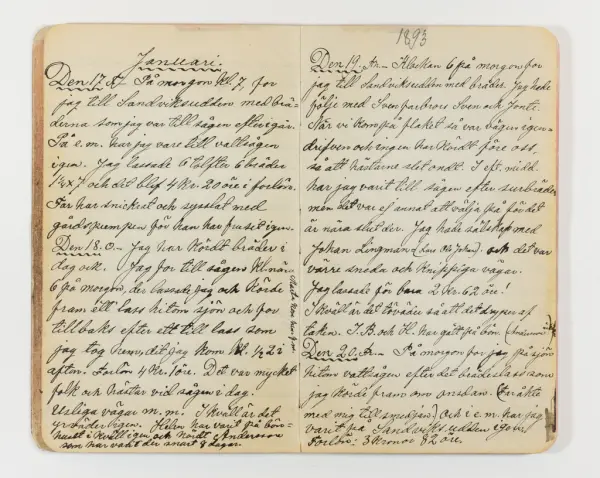 Januari.
Den 17. På morgon kl. 7, for
jag till Sandviksudden med brä-
derna som jag var till sågen efter igår.
På e.m. har jag varit till vattsågen
igen. Jag lassade 6 tolfter 6 bräder
1¼ x 7 och det blef 4 Kr. 20 öre i forlön.
Far har snickrat och sysslat med
gårdspumpen för han har frusit igen.
Den 18. O.- Jag har kördt bräder i
dag ock. Jag for till sågen kl. när
6 på morgon, der lassade jag och körde
fram ett lass hitom sjön och for
tillbaks efter ett till lass som
jag tog hem, dit jag kom kl. ½ 22
afton. Forlön 4 Kr. 10 öre. Det var mycket
folk och hästar vid sågen i dag.
Usliga vägar m. m. I kväll är det
yrväder igen. Helm har varit på bön-
huset i kväll igen och hördt Andersson
som har varit der snart 8 dagar.
1893
Den 19. Klockan 6 på morgon for
jag till Sandviksudden med bräder. Jag hade
följe med Sven farbrors Sven och Jonte.
När vi kom på flaket så var vägen igen-
drifven och ingen har kördt före oss,
så att hästarna slet ondt. I eft. midd.
har jag varit till sågen efter
men det var ej annat att välja på för det
är nära slut der. Jag hade sällskap med
Johan Lingman och det var
värre sneda och knippiga vägar.
Jag lassade för bara 2 Kr. 62 öre!
I kväll är det töväder så att det dryper af
taken. J.B. och H. har gått på bön.
Den 20. På morgon for jag på sjön
hitom vattsågen efter det brädeslass som
jag körde fram om onsdan. (En åkte
med mig till smedjan) Och i e.m. har jag
varit på Sandviksudden igen.
Forlön: 3 Kronor 82 öre.